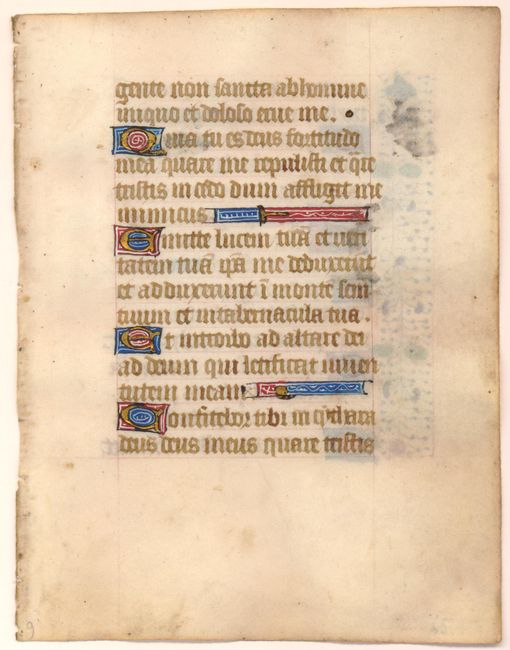 gente non sancta ab homine
iniquo et doloso erue me.
Quia tu es deus fortitudo
mea quare me repulisti et qre
tristis in cedo dum affligit me
inimicus
Emitte lucem tuā et veri
tatem tuā ipā me deduxerunt
et adduxerunt ī monte scm
tuum et in tabernacula tua.
Et introibo ad altare dei
ad deum qui letificat iuven
tutem meam
Confitebor tibi in cythara
deus deus meus quare tristis
9